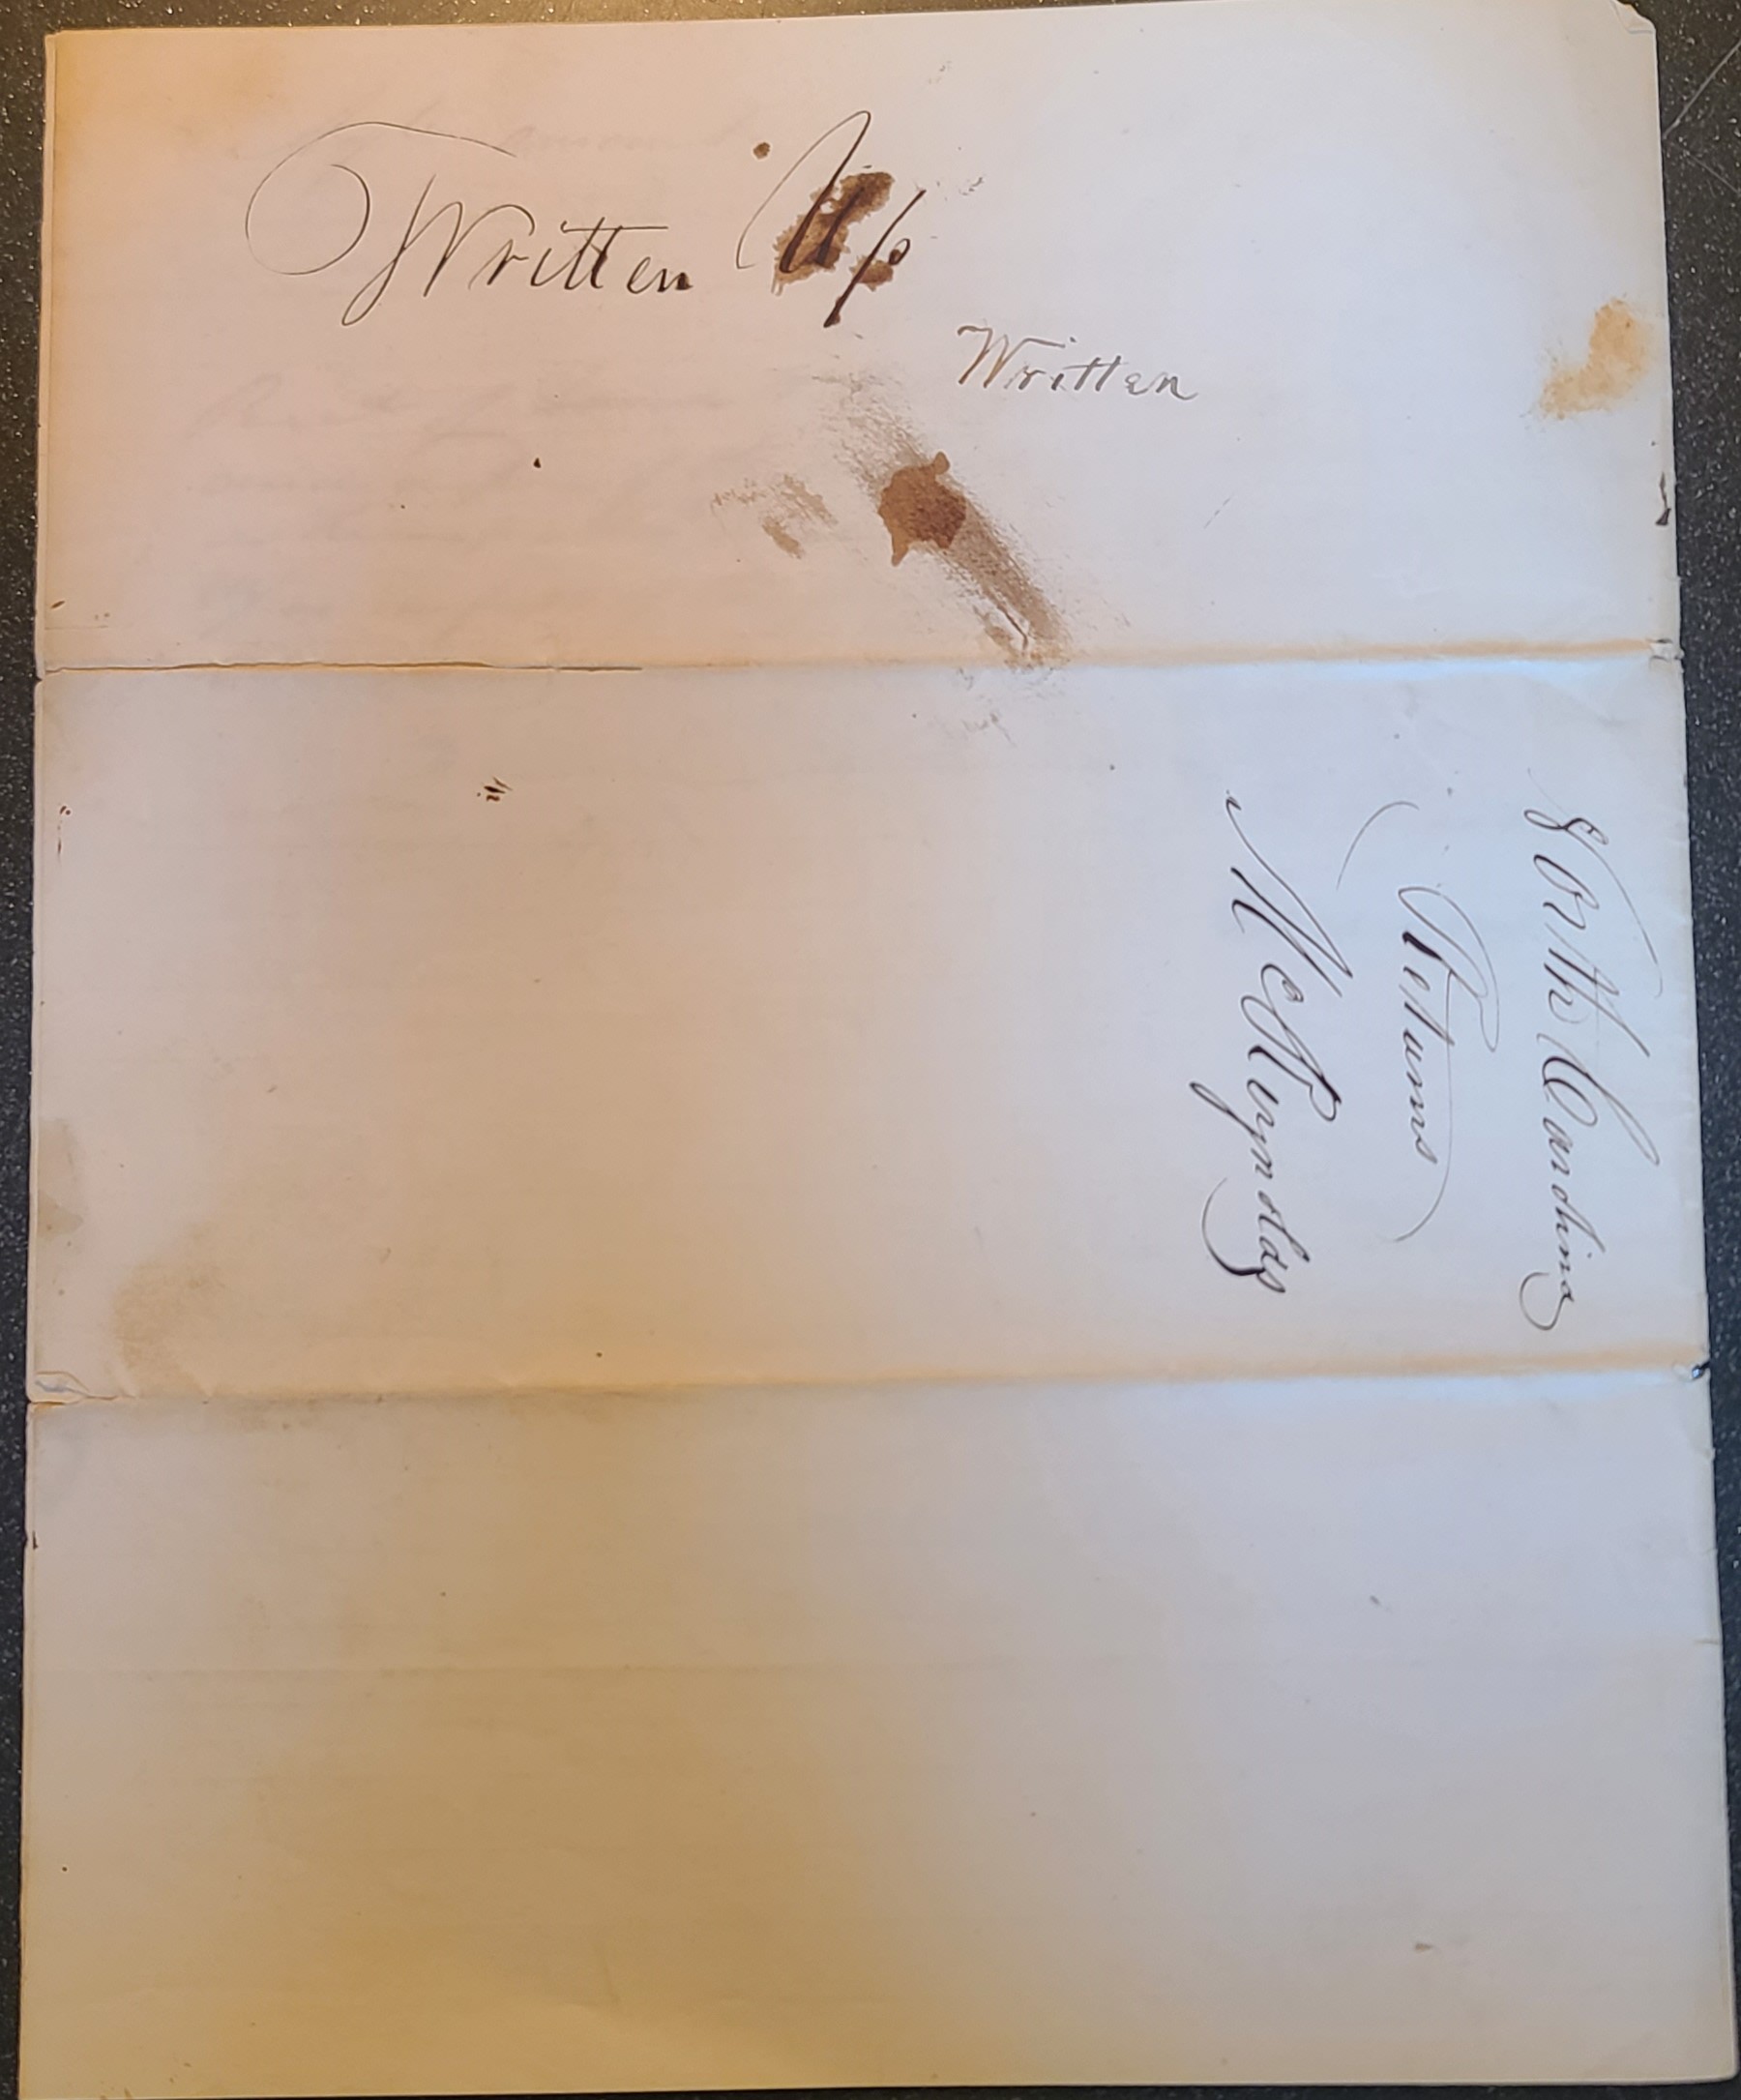 Written Up
Written
North Carolina
Returns
McReynolds